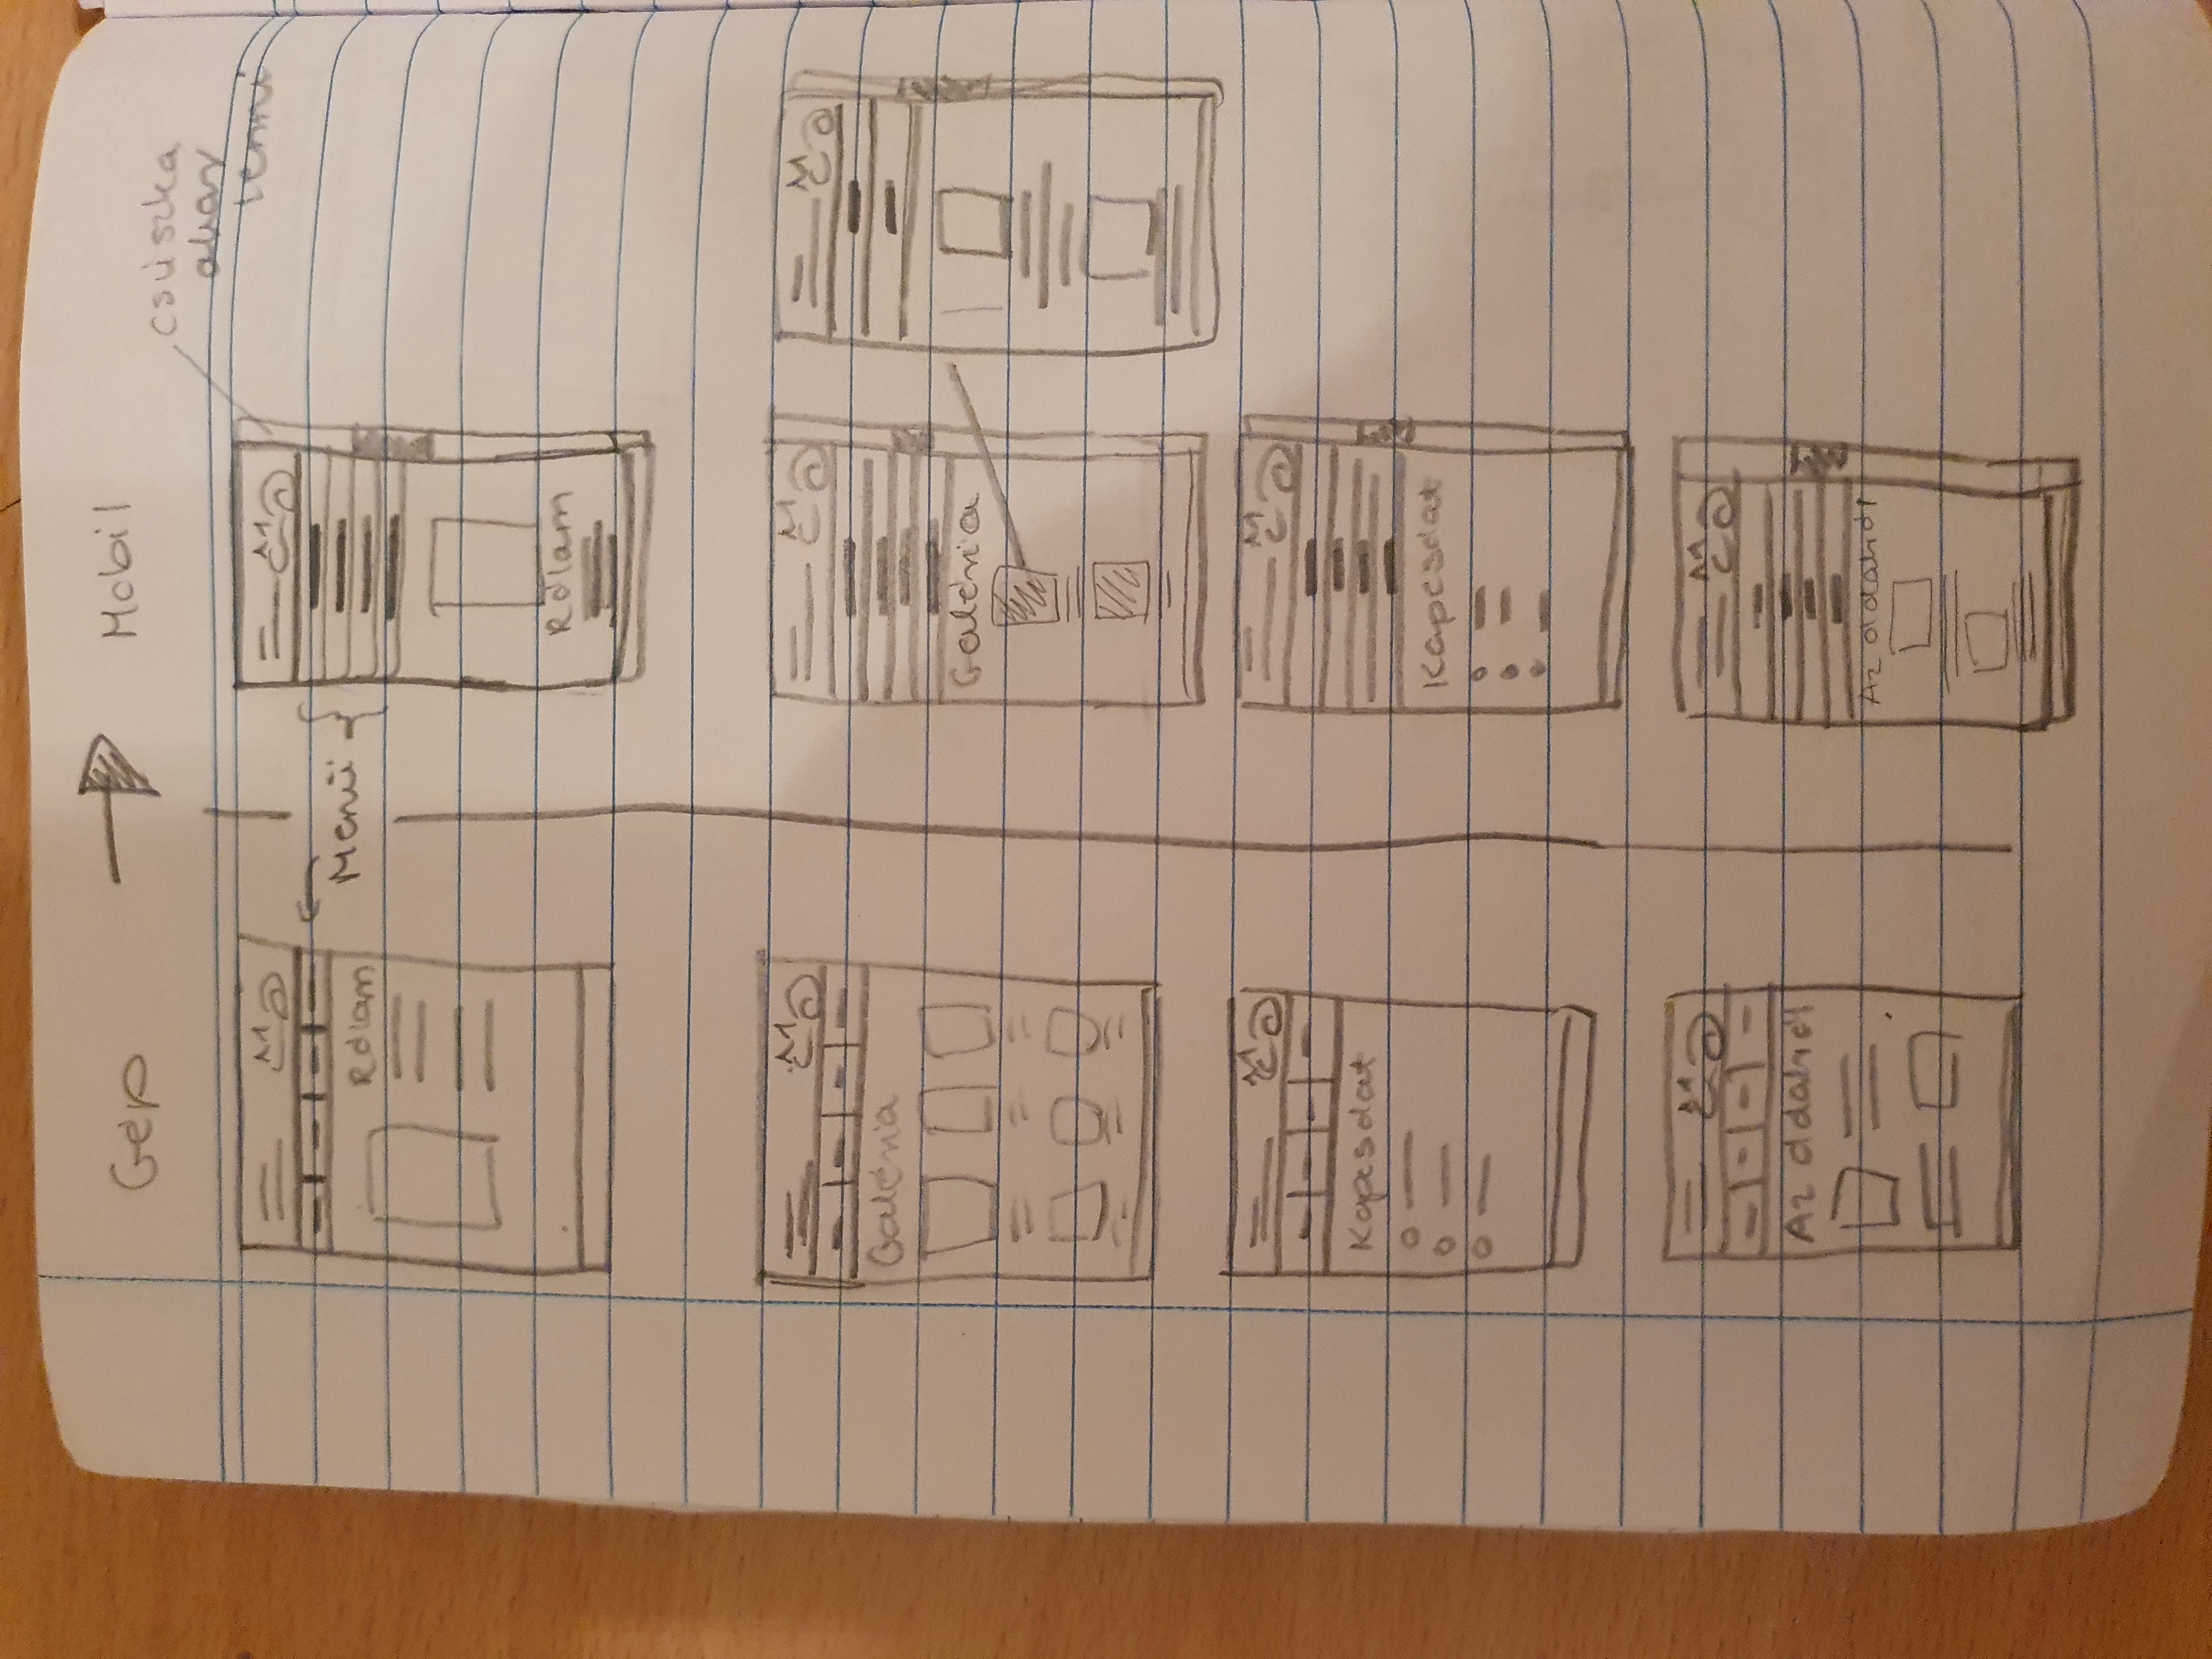 Gép
Mobil
csúszka
akar
lenni
Menü
Rólam
Rólam
Galéria
Galéria
Kapcsolat
Kapcsolat
Az oldalról
Az oldalról